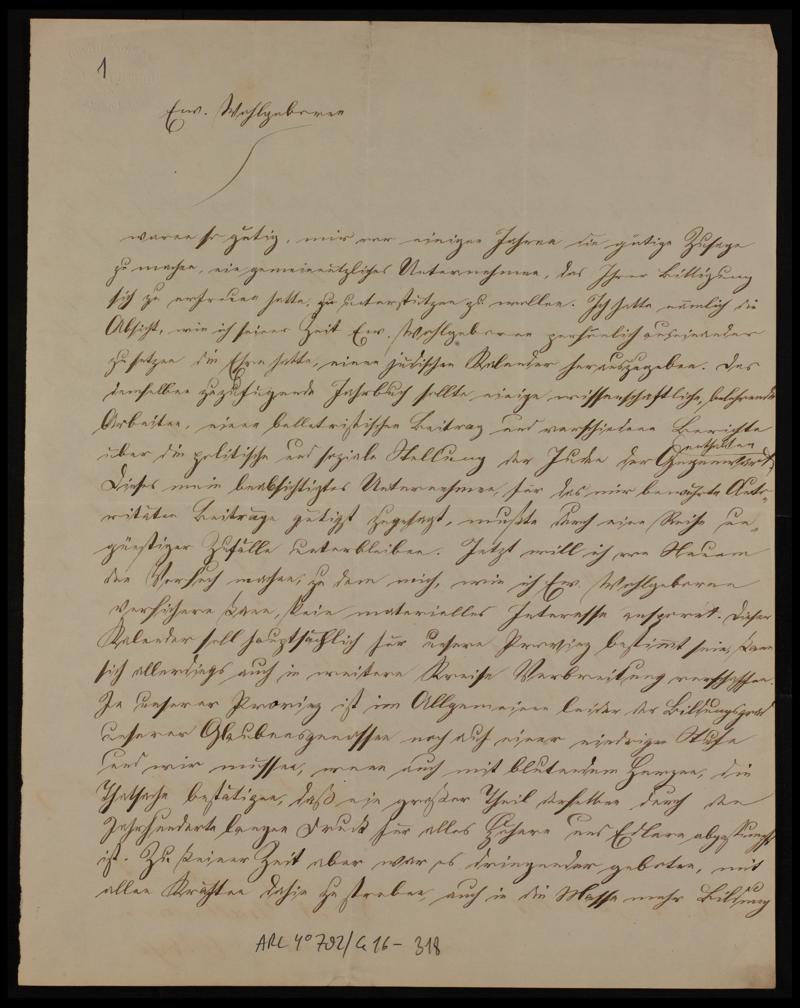 1
Ew. Wohlgeboren
waren so gütig, mir vor einigen Jahren die gütige Zusage
zu machen, ein gemeinnütziges Unternehmen, das Ihrer Billigung
sich zu erfreuen hatte, zu unterstützen zu wollen. Ich hatte nämlich die
Absicht, wie ich seiner Zeit Ew. Wohlgeboren persönlich auseinander
zusetzen die Ehre hatte, einen jüdischen Kalender herauszugeben. Das
demselben zuzufügende Jahrbuch sollte einige wissenschaftliche, belehrende
Arbeiten, einen belletristischen Beitrag und verschiedene Berichte
über die politische und soziale Stellung der Juden der Gegenwart enthalten.
Dieses mein beabsichtigtes Unternehmen, für das mir bewährte Auto-
ritäten Beiträge gütigst zugesagt, mußte durch eine Reihe un-
günstiger Zufälle unterbleiben. Jetzt will ich von Neuem
den Versuch machen, zu dem mich, wie ich Ew. Wohlgeboren
versichern kann, kein materielles Interesse anspornt. Dieser
Kalender soll hauptsächlich für unsere Provinz bestimmt sein, kann
sich allerdings auch in weitere Kreise Verbreitung verschaffen.
In unserer Provinz ist im Allgemeinen leider der Bildungsgrad
unserer Glaubensgenossen noch auf einer niedrigen Stufe
und wir müssen, wenn auch mit blutendem Herzen, die
Thatsache bestätigen, daß ein großer Theil derselben durch den
Jahrhunderte langen Druck für alles Höhere und Edlere abgestumpft
ist. Zu keiner Zeit aber war es dringender geboten, mit
allen Kräften dahin zu streben, auch in die Masse mehr Bildung
ARC 4° 792/G 16 - 318